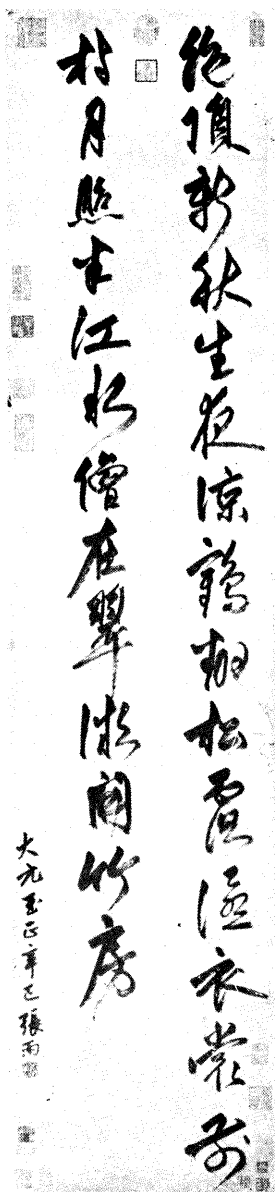 絕頂新秋生夜涼鶴翻松露溼衣裳前
村月照半江水僧在翠微開竹房
大元至正辛巳張雨